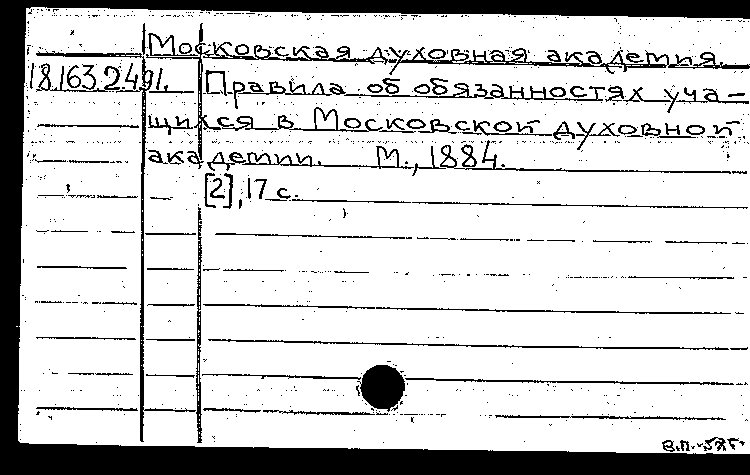 Московская духовная академия.
18.163.2.491. Правила об обязанностях уча-
щихся в Московской духовной
академии. М., 1884.
[2], 17 с.